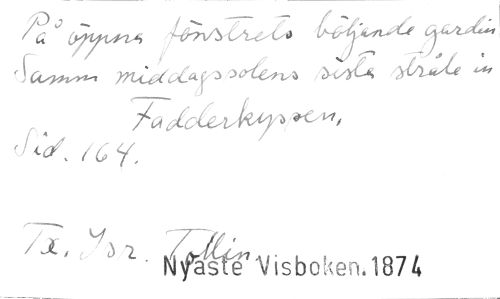 På öppna fönstrets böljande gardin
Samm middagssolens sista stråle in
Fadderkyssen.
Sid. 164.
Tx. Isr. Tollin.
Nyaste Visboken. 1874